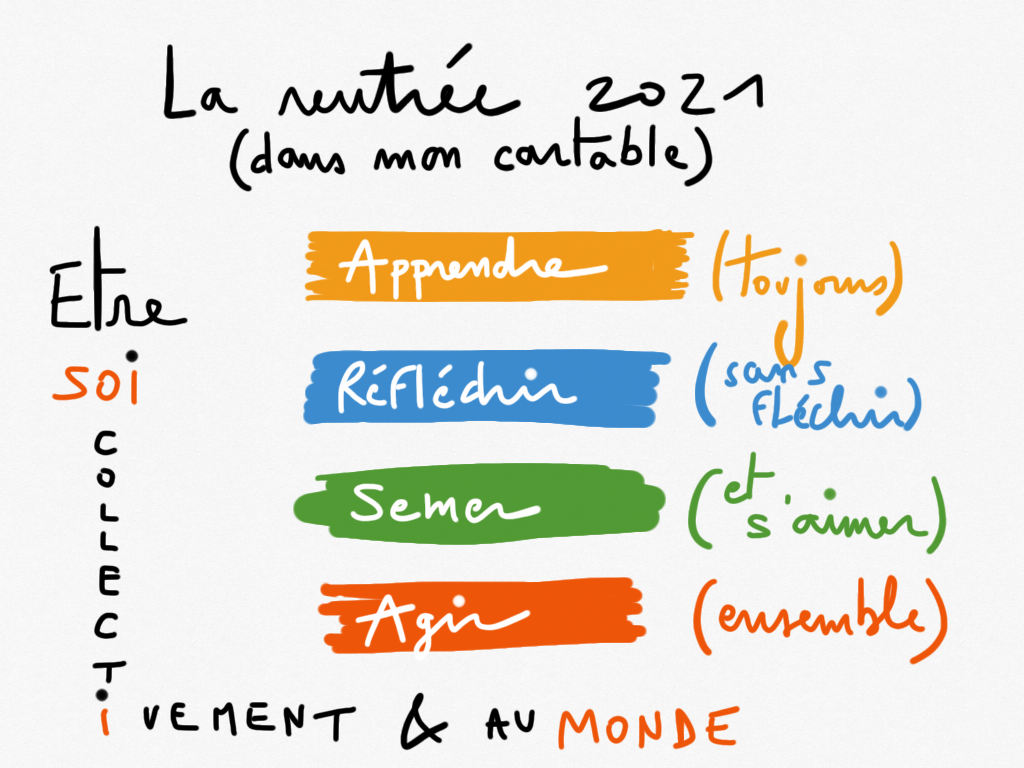 La rentrée 2021
(dans mon cartable)
Etre
soi
COLLECTiVEMENT & AU MONDE
Apprendre (toujours)
Réfléchir (sans
fléchir)
Semer (et
s'aimer)
Agir (ensemble)